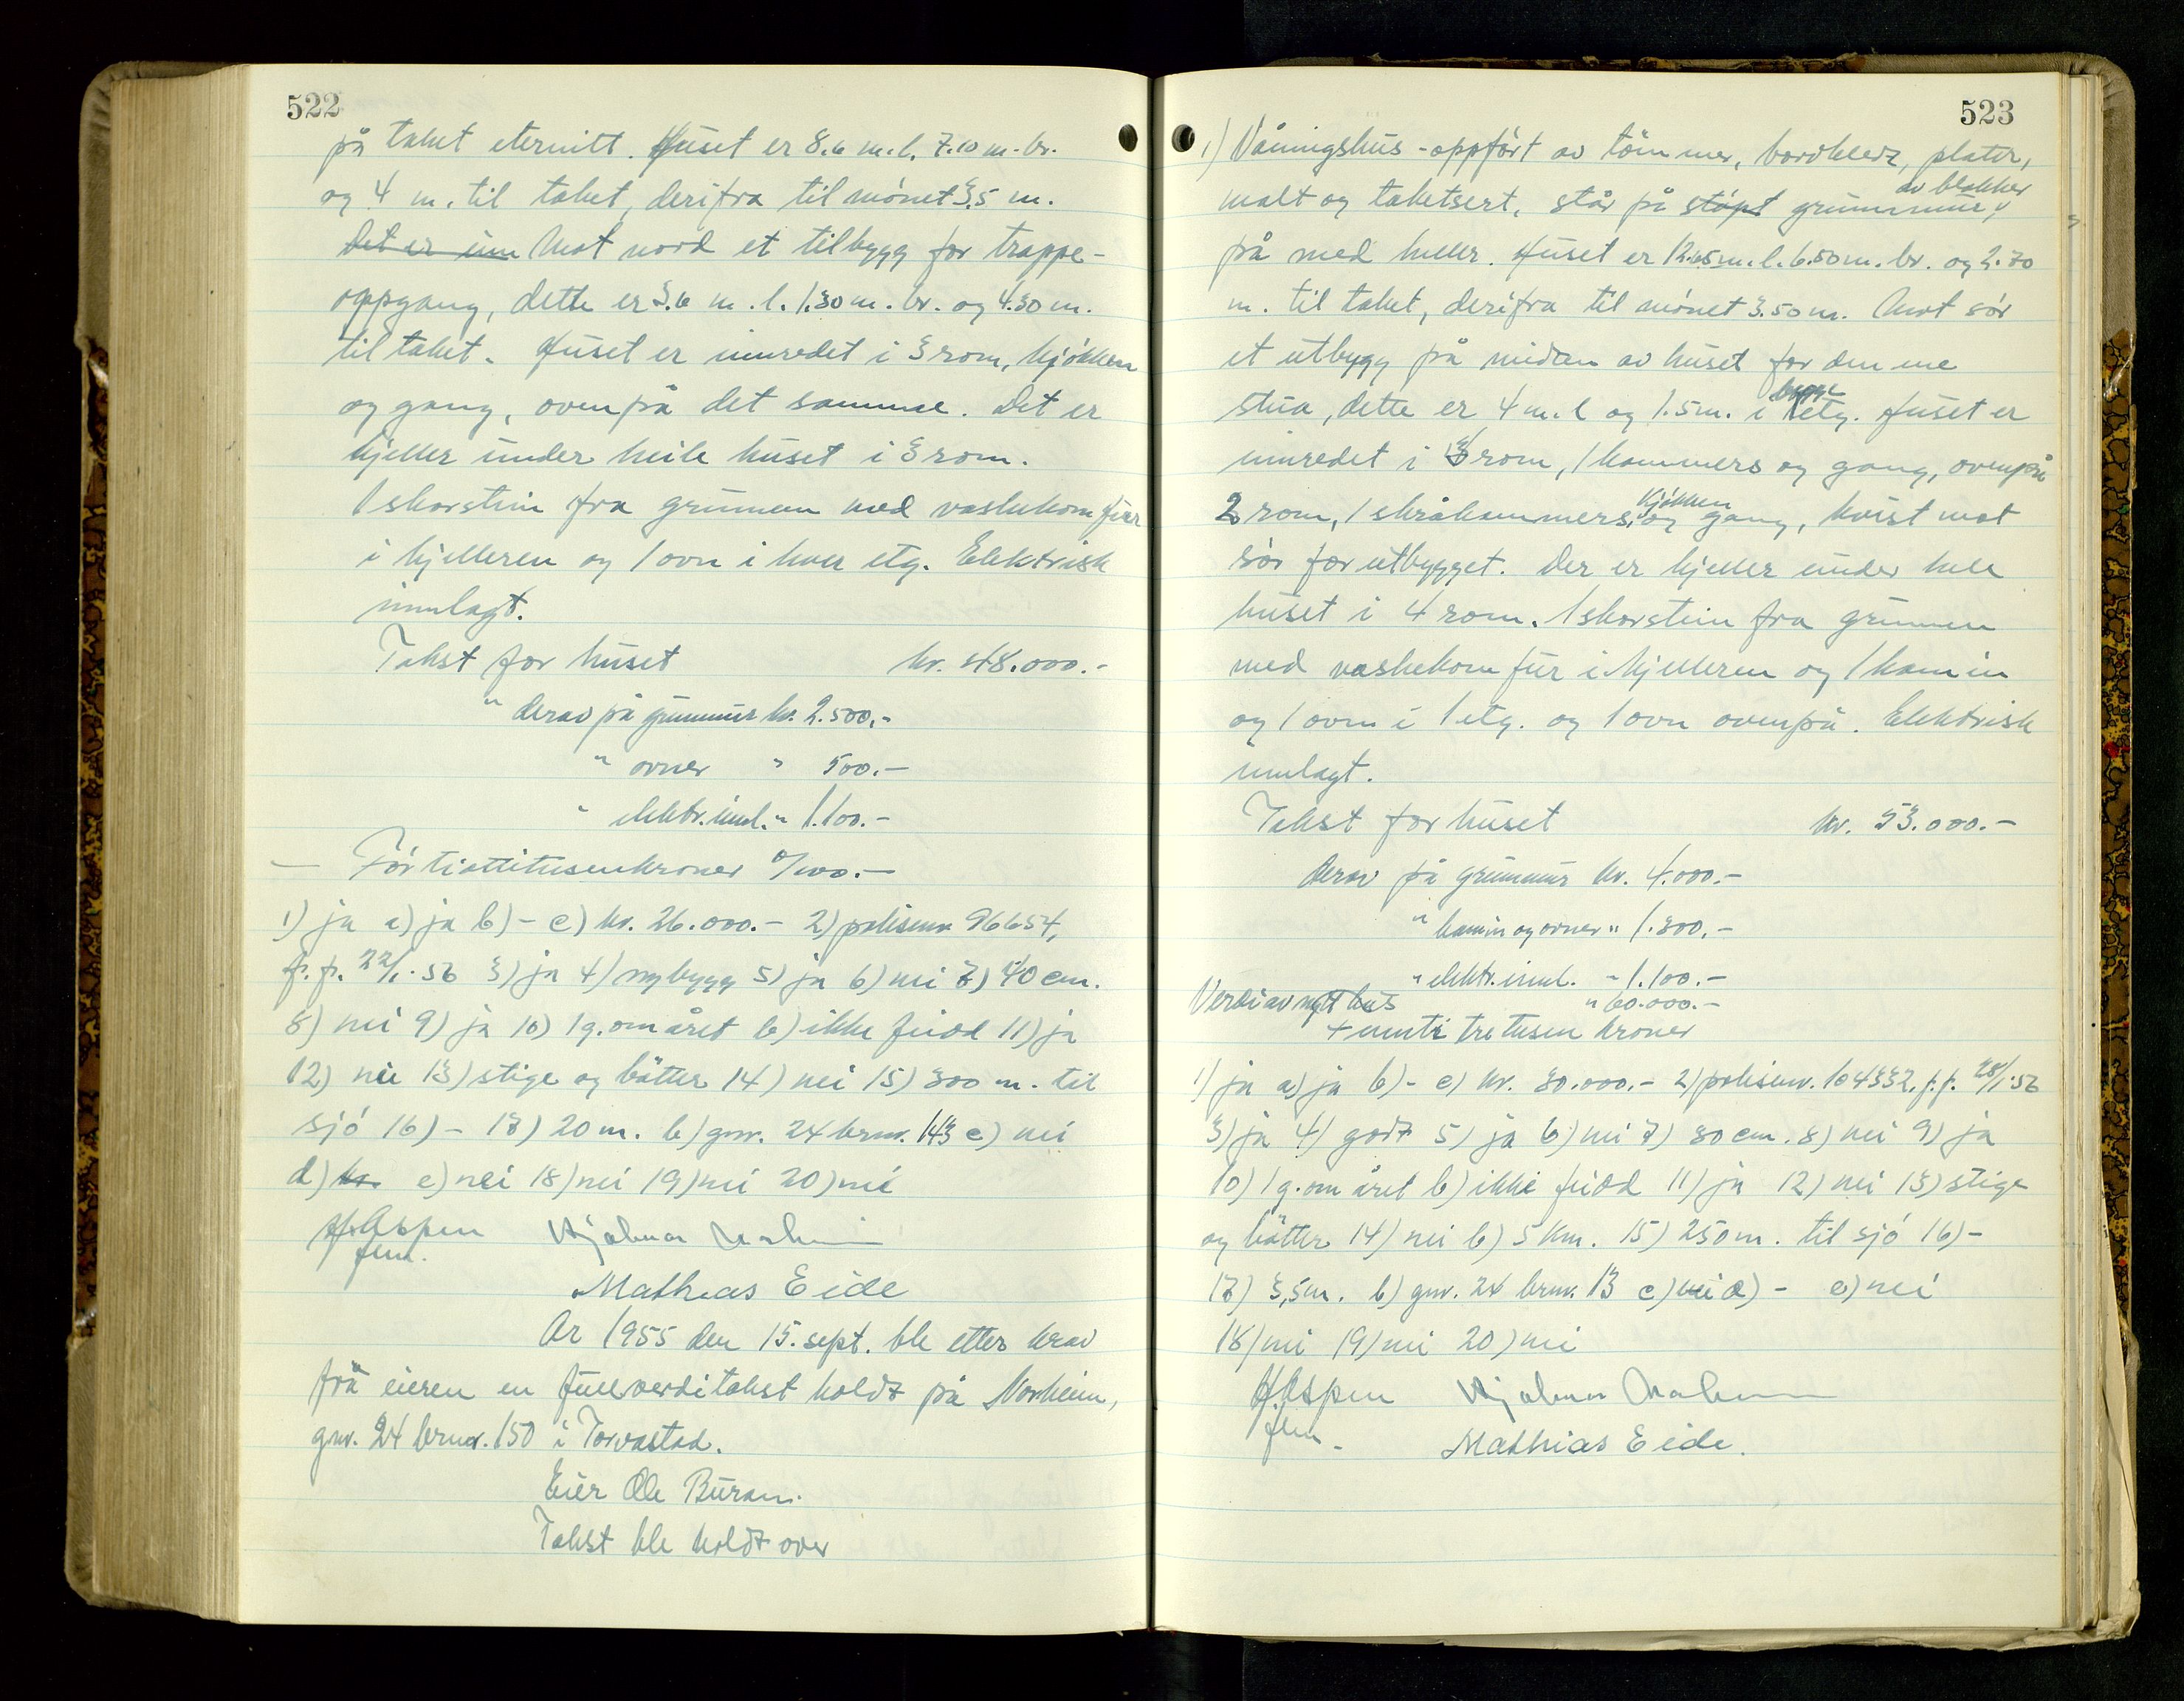 522
på taket eternitt. Huset er 8.6 m.l. 7.10 m. br.
og 4 m. til taket, derifra til mønet 3.5 m.
Det er inn Mot nord et tilbygg for trappe-
oppgang, dette er 3.6 m.l. 1.30 m. br. og 4.30 m.
til taket. Huset er innredet i 3 rom, kjøkken
og gang, ovenpå det samme. Det er
kjeller under heile huset i 3 rom.
1 skorstein fra grunnen med vaskekomfur
i kjelleren og 1 ovn i hver etg. Elektrisk
innlagt.
Takst for huset kr. 48.000.-
" derav på grunnmur kr. 2.500.-
" ovner " 500.-
" elektr. innl. " 1.100.-
— Førtiåttitusenkroner 0/100.-
1) ja a) ja b) - c) kr. 26.000.- 2) polisenr. 96654,
f.f. 22/1.56 3) ja 4) nybygg 5) ja 6) nei 7) 40 cm.
8) nei 9) ja 10) 1 g. om året b) ikke feied 11) ja
12) nei 13) stige og bøtter 14) nei 15) 300 m. til
sjø 16) - 17) 20 m. b) gnr. 24 brnr. 143 c) nei
d) kr. e) nei 18) nei 19) nei 20) nei
H. Aspen Hjalmar
flm.
Mathias Eide
År 1955 den 15. sept. ble etter krav
frå eieren en fullverditakst holdt på Norheim,
gnr. 24 brnr. 150 i Torvastad.
Eier Ole Buran.
Takst ble holdt over
523
1) Våningshus - oppført av tømmer, bordkledt, plater,
av blokker
malt og taketsert, står på støpt grunnmur,
på med heller. Huset er 12.65 m.l. 6.50 m. br. og 2.70
m. til taket, derifra til mønet 3.50 m. Mot sør
et utbygg på midten av huset for den ene
begge
stua, dette er 4 m.l og 1.5 m. i etg. Huset er
innredet i 3 rom, 1 kammers og gang, ovenpå
kjøkken
2 rom, 1 skråkammers, og gang, kvist mot
sør for utbygget. Der er kjeller under hele
huset i 4 rom. 1 skorstein fra grunnen
med vaskekomfur i kjelleren og 1 kamin
og 1 ovn i 1 etg. og 1 ovn ovenpå. Elektrisk
innlagt.
Takst for huset kr. 53.000.-
derav på grunnmur kr. 4.000.-
" kamin og ovner " 1.300.-
" elektr. innl. " 1.100.-
Verdi av nytt hus " 60.000.-
+ femti tre tusen kroner
1) ja a) ja b) - c) kr. 30.000.- 2) polisenr. 104332. f.f. 28/1.56
3) ja 4) godt 5) ja 6) nei 7) 30 cm. 8) nei 9) ja
10) 1 g. om året b) ikke feied 11) ja 12) nei 13) stige
og bøtter 14) nei b) 5 km. 15) 250 m. til sjø 16) -
17) 3,5 m. b) gnr. 24 brnr. 13 c) nei d) - e) nei
18) nei 19) nei 20) nei
H. Aspen Hjalmar
flm.
Mathias Eide.